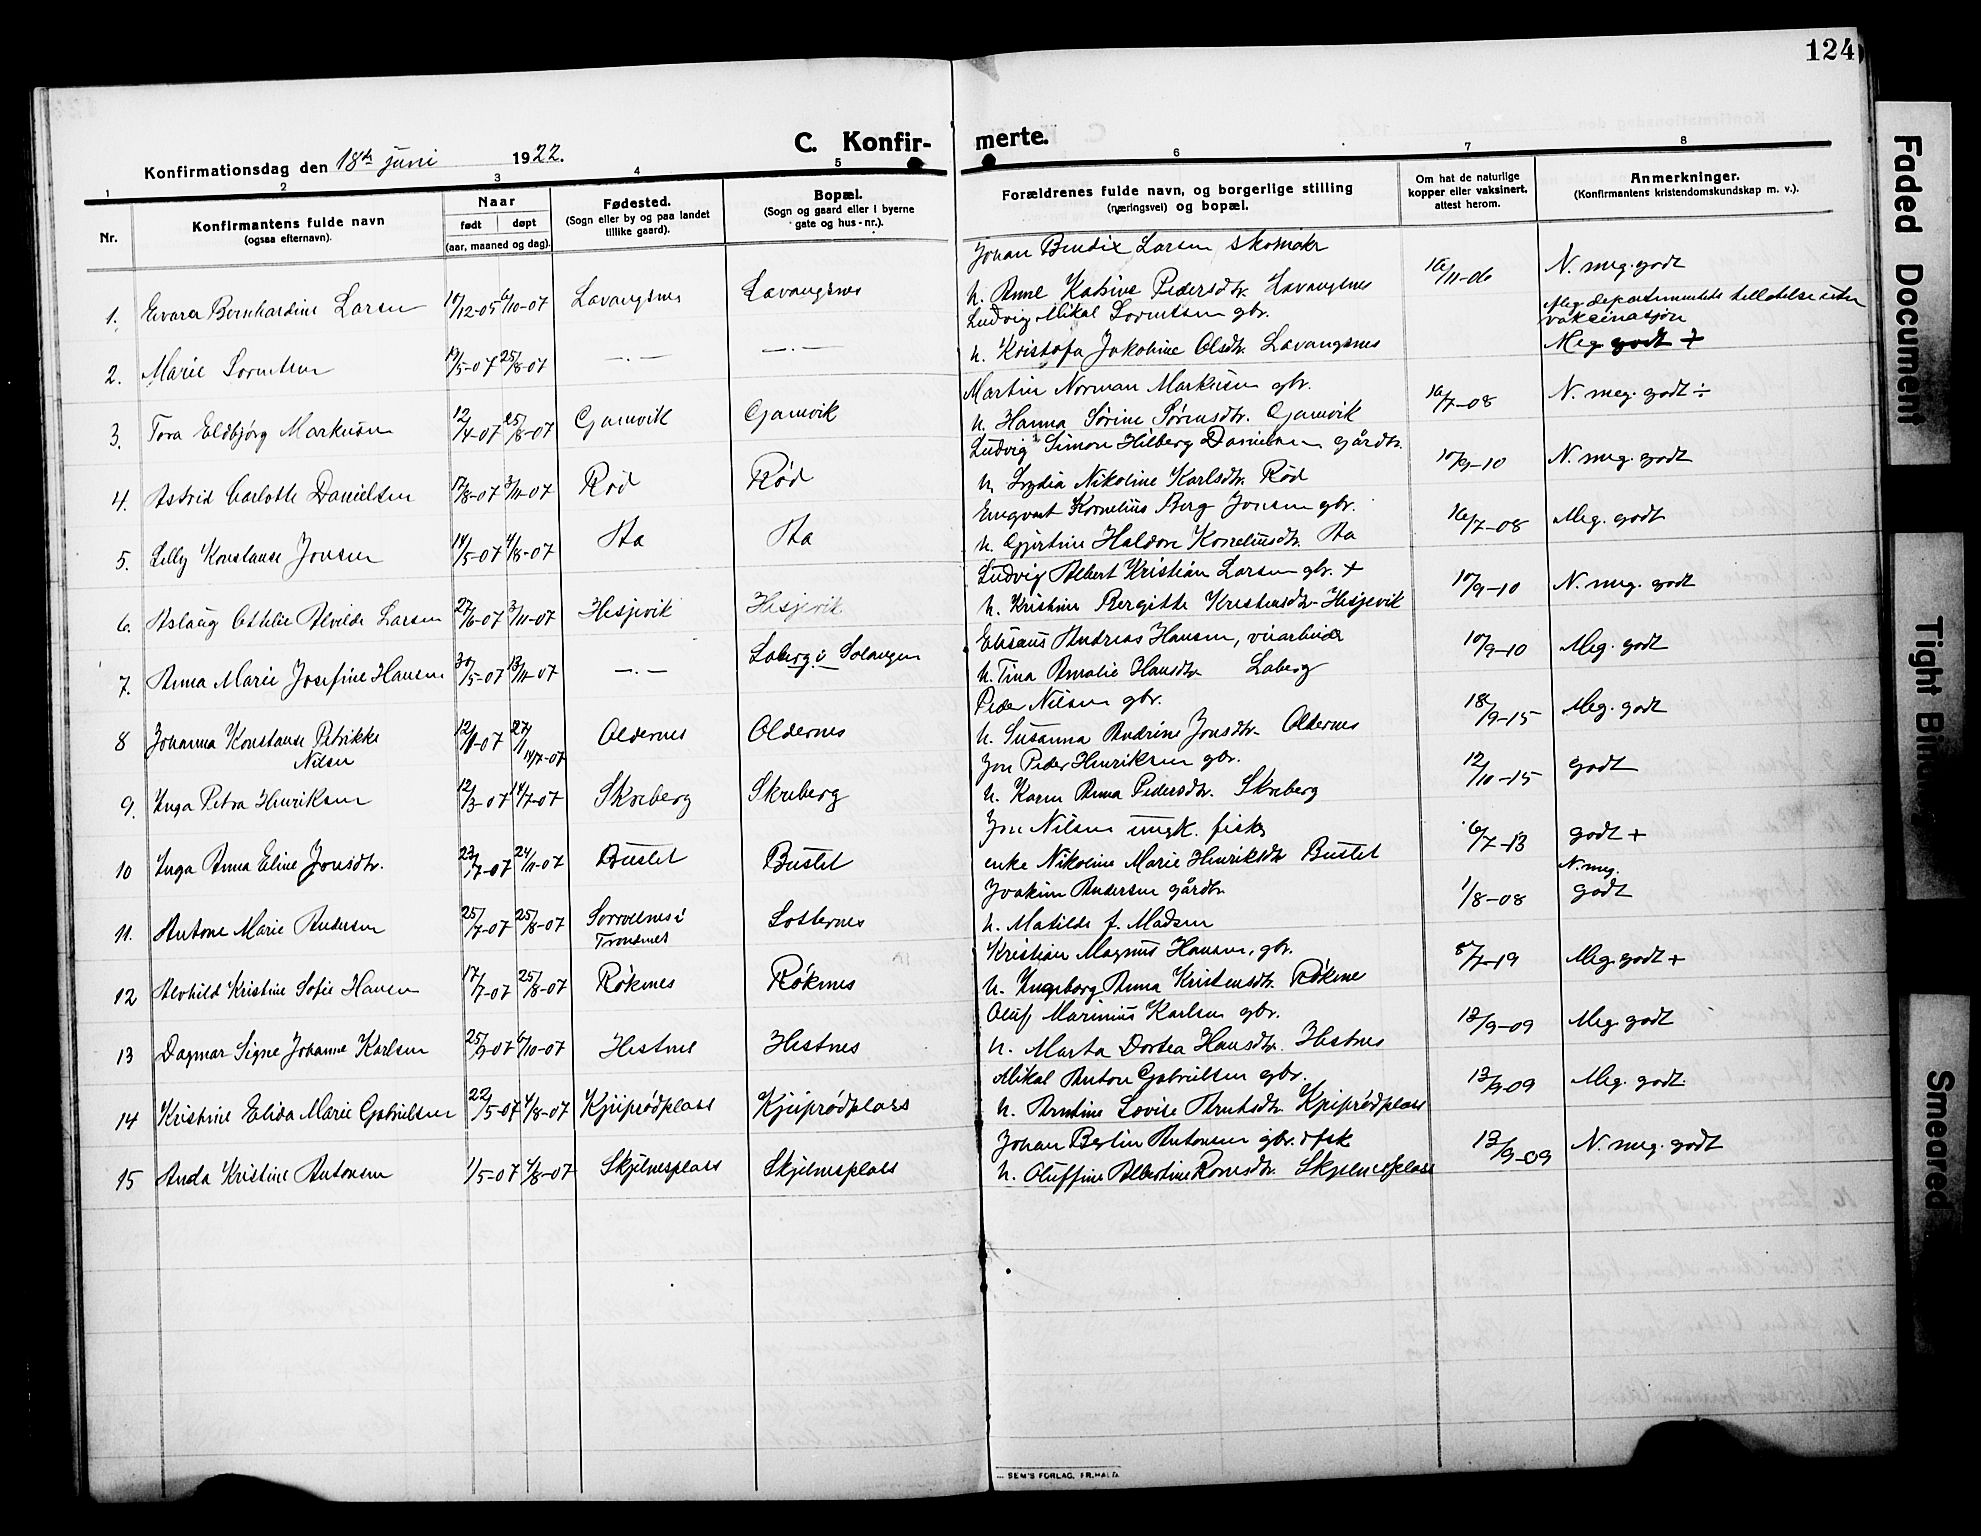 124
C. Konfirmerte.
Konfirmationsdag den 18de juni 1922.
1 2 3 4 5 6 7 8
Nr.
Konfirmantens fulde navn
(ogsaa efternavn).
Naar
født døpt
(aar, maaned og dag).
Fødested.
(Sogn eller by og paa landet
tillike gaard).
Bopæl.
(Sogn og gaard eller i byerne
gate og hus-nr.).
Forældrenes fulde navn, og borgerlige stilling
(næringsvei) og bopæl.
Om hat de naturlige
kopper eller vaksinert.
attest herom.
Anmerkninger.
(Konfirmantens kristendomskundskap m. v.).
Johan Bendix Larsen skomaker
1. Evara Bernhardine Larsen 10/12-05 6/10-07 Lavangsnes Lavangsnes h. Anne Katrine Pedersdtr. Lavangsnes 16/11-06 N. meg. godt
Ludvig Mikal Sorentsen gbr. Meg. departementets tillatelse uten
vaksinasjon
2. Marie Sorentsen 13/5-07 25/8-07 —.— —.— h. Kristofa Jakobine Olsdtr. Lavangsnes Meg godt +
Martin Norman Markusen gbr.
3. Tora Eldbjørg Markusen 12/4-07 25/8-07 Gamvik Gamvik h. Hanna Sørine Sørensdtr. Gamvik 16/7-08 N. meg. godt ÷
Ludvig Simon Hilberg Danielsen gårdbr.
4. Astrid Charlotte Danielsen 17/8-07 3/11-07 Rød Rød h. Lydia Nikoline Karlsdtr. Rød 10/9-10 N. meg. godt
Engvart Kornelius Berg Jonsen gbr.
5. Lilly Konstanse Jonsen 14/5-07 4/8-07 Aa Aa h. Gjertine Haldora Korneliusdtr. Aa 16/7-08 Meg. godt
Ludvig Albert Kristian Larsen gbr. +
6. Aslaug Ottelie Alvilde Larsen 27/6-07 3/11-07 Hesjevik Hesjevik h. Kristine Bergitte Kristensdtr. Hesjevik 10/9-10 N. meg. godt
Elisæus Andreas Hansen, veiarbeider
7. Anna Marie Josefine Hansen 30/5-07 13/11-07 —.— Laberg i Salangen h. Tina Amalie Hansdtr. Laberg 10/9-10 Meg. godt
Peder Nilsen gbr.
8 Johanna Konstanse Petrikke
Nilsen Oldernes Oldernes h. Susanna Andrine Jonsdtr. Oldernes 18/9-15 Meg. godt
Jon Peder Henriksen gbr.
9. Inga Petra Henriksen 12/3-07 14/7-07 Skreberg Skreberg h. Karen Anna Pedersdtr. Skreberg 12/10-15 godt
Jon Nilsen ungk. fisker
10 Inga Anna Eline Jonsdtr. 23/7-07 24/11-07 Bustet Bustet enke Nikoline Marie Henriksdtr. Bustet 6/7-13 godt +
Joakim Andersen gårdbr. N. meg.
11. Antone Marie Andersen 25/7-07 25/8-07 Sørrollnes i
Trondenes Sotternes h. Matilde f. Madsen 1/8-08 godt
Kristian Magnus Hansen, gbr.
12 Alvhild Kristine Sofie Hansen 17/7-07 25/8-07 Røkenes Røkenes h. Ingeborg Anna Kristensdtr. Røkene 8/7-19 Meg. godt +
Oluf Marinius Karlsen gbr.
13 Dagmar Signe Johanne Karlsen 25/9-07 6/10-07 Hestnes Hestnes h. Marta Dortea Hansdtr. Hestnes 13/9-09 Meg. godt
Mikal Anton Gabrielsen gbr.
14 Kristine Elida Marie Gabrielsen 22/5-07 4/8-07 Kjiprødplass Kjiprødplass h. Arntine Lovise Arntsdtr. Kjiprødplass 13/9-09 Meg. godt
Johan Berlin Antonsen gbr. ofsk
15 Anda Kristine Antonsen 1/5-07 4/8-07 Skjelnesplass Skjelnesplass h. Oluffine Albertine Hansdtr. Skjelnesplass 13/9-09 N. meg. godt
SEM'S FORLAG, FR.HALD
Faded Document
Tight Binding
Smeared